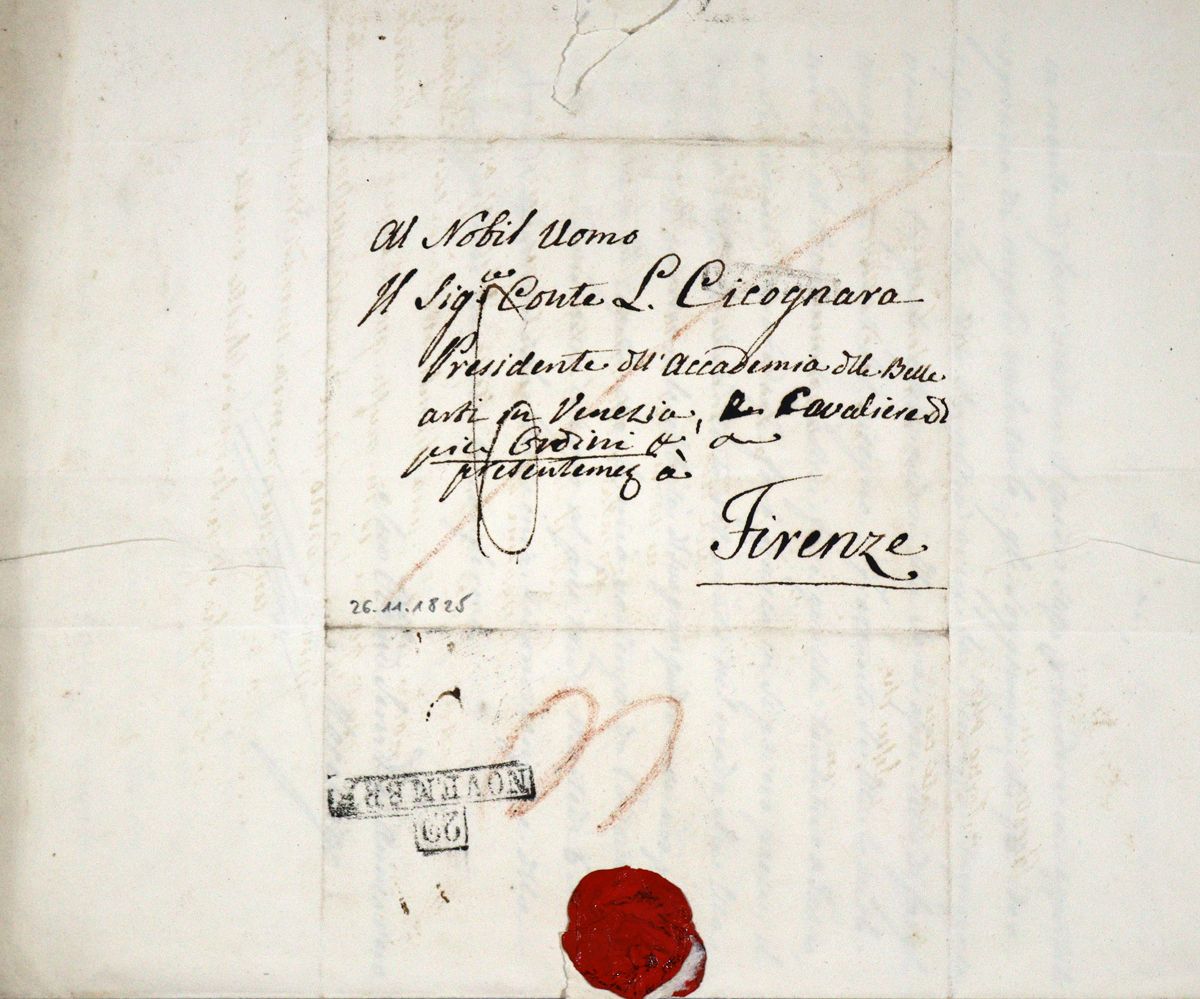 Al Nobil Uomo
Il Sig.re Conte L. Cicognara
Presidente dll'Accademia dlle Belle
arti in Venezia, Cavaliere di
piu Ordini & &
presentemeɳ à
Firenze
26.11.1825
NOVEMBRE
29